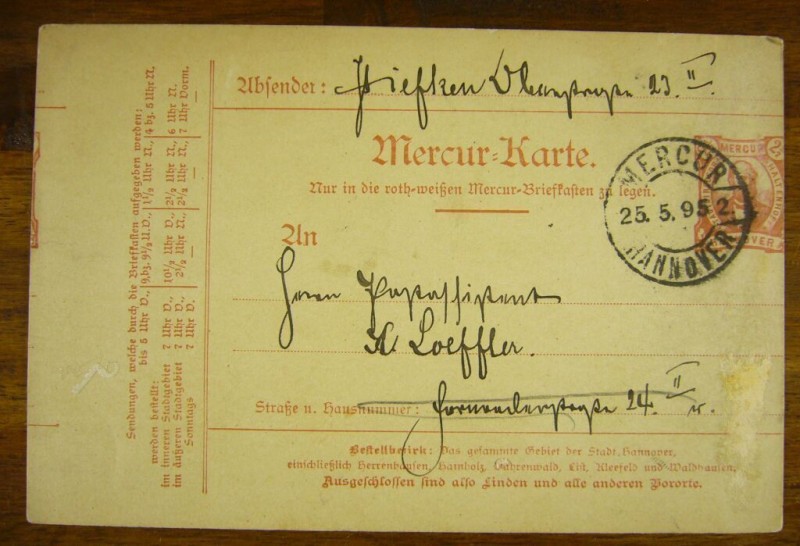 Absender: Stiefken 23. II.
Mercur-Karte.
Nur in die roth-weißen Mercur-Briefkasten zu legen.
MERCUR
25. 5. 95 2
HANNOVER
MERCUR
2
An
Herrn Postassistent
K Loeffler.
Straße u. Hausnummer: 24. II r.
Bestellbezirk: Das gesammte Gebiet der Stadt Hannover,
einschließlich Herrenhausen, Hainholz, Vahrenwald, List, Kleefeld und Waldhausen,
Ausgeschlossen sind also Linden und alle anderen Vororte.
Sendungen, welche durch die Briefkasten aufgegeben werden:
bis 5 Uhr V., 9, bz. 9½ U. V., 1½ Uhr N., 4 bz. 5 Uhr N.
werden bestellt:
im inneren Stadtgebiet 7 Uhr V., 10½ Uhr V., 2½ Uhr N., 6 Uhr N.
im äußeren Stadtgebiet 7 Uhr V., 2½ Uhr N., 2½ Uhr N., 7 Uhr Vorm.
Sonntags 7 Uhr V. — — —